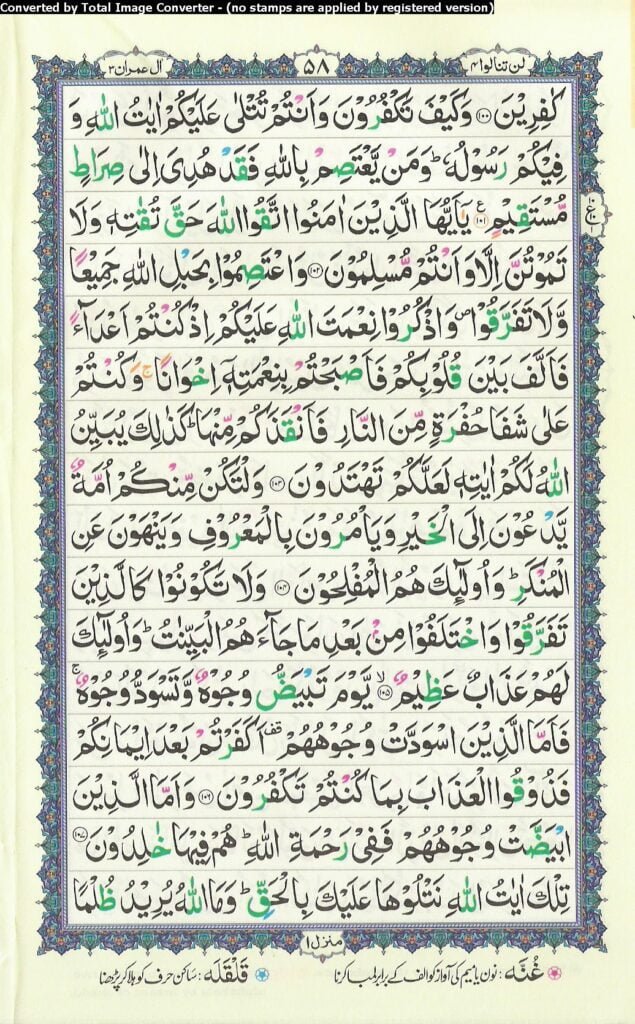 Converted by Total Image Converter - (no stamps are applied by registered version)
لن تنالوا ۴ ۵۸ ال عمران ۳
كٰفِرِيْنَ ﴿۱۰۰﴾ وَكَيْفَ تَكْفُرُوْنَ وَاَنْتُمْ تُتْلٰى عَلَيْكُمْ اٰيٰتُ اللّٰهِ وَ
فِيْكُمْ رَسُوْلُهٗ ؕ وَمَنْ يَّعْتَصِمْ بِاللّٰهِ فَقَدْ هُدِىَ اِلٰى صِرَاطٍ
مُّسْتَقِيْمٍ ﴿۱۰۱﴾ ع يٰۤاَيُّهَا الَّذِيْنَ اٰمَنُوا اتَّقُوا اللّٰهَ حَقَّ تُقٰتِهٖ وَلَا
تَمُوْتُنَّ اِلَّا وَاَنْتُمْ مُّسْلِمُوْنَ ﴿۱۰۲﴾ وَاعْتَصِمُوْا بِحَبْلِ اللّٰهِ جَمِيْعًا
وَّلَا تَفَرَّقُوْا ص وَاذْكُرُوْا نِعْمَتَ اللّٰهِ عَلَيْكُمْ اِذْ كُنْتُمْ اَعْدَآءً
فَاَلَّفَ بَيْنَ قُلُوْبِكُمْ فَاَصْبَحْتُمْ بِنِعْمَتِهٖۤ اِخْوَانًا ۚ وَكُنْتُمْ
عَلٰى شَفَا حُفْرَةٍ مِّنَ النَّارِ فَاَنْقَذَكُمْ مِّنْهَا ؕ كَذٰلِكَ يُبَيِّنُ
اللّٰهُ لَكُمْ اٰيٰتِهٖ لَعَلَّكُمْ تَهْتَدُوْنَ ﴿۱۰۳﴾ وَلْتَكُنْ مِّنْكُمْ اُمَّةٌ
يَّدْعُوْنَ اِلَى الْخَيْرِ وَيَاْمُرُوْنَ بِالْمَعْرُوْفِ وَيَنْهَوْنَ عَنِ
الْمُنْكَرِ ؕ وَاُولٰٓئِكَ هُمُ الْمُفْلِحُوْنَ ﴿۱۰۴﴾ وَلَا تَكُوْنُوْا كَالَّذِيْنَ
تَفَرَّقُوْا وَاخْتَلَفُوْا مِنْۢ بَعْدِ مَا جَآءَهُمُ الْبَيِّنٰتُ ؕ وَاُولٰٓئِكَ
لَهُمْ عَذَابٌ عَظِيْمٌ ﴿۱۰۵﴾ ۙ يَّوْمَ تَبْيَضُّ وُجُوْهٌ وَّتَسْوَدُّ وُجُوْهٌ ۚ
فَاَمَّا الَّذِيْنَ اسْوَدَّتْ وُجُوْهُهُمْ قف اَكَفَرْتُمْ بَعْدَ اِيْمَانِكُمْ
فَذُوْقُوا الْعَذَابَ بِمَا كُنْتُمْ تَكْفُرُوْنَ ﴿۱۰۶﴾ وَاَمَّا الَّذِيْنَ
ابْيَضَّتْ وُجُوْهُهُمْ فَفِىْ رَحْمَةِ اللّٰهِ ؕ هُمْ فِيْهَا خٰلِدُوْنَ ﴿۱۰۷﴾
تِلْكَ اٰيٰتُ اللّٰهِ نَتْلُوْهَا عَلَيْكَ بِالْحَقِّ ؕ وَمَا اللّٰهُ يُرِيْدُ ظُلْمًا
منزل ۱
غُنَّه: نون یا میم کی آواز کو الف کے برابر لمبا کرنا قَلْقَلَه: ساکن حرف کو ہلا کر پڑھنا